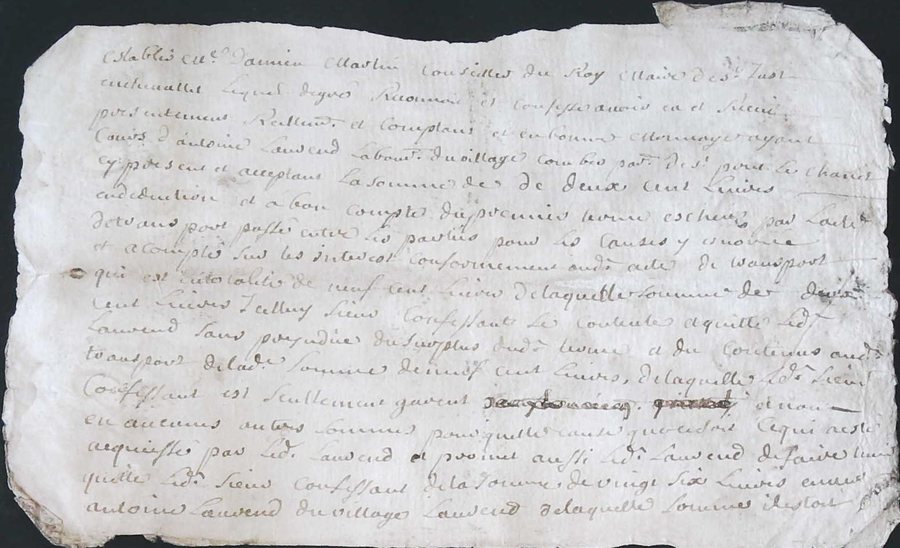 establi en s.r Damien Martin Conseiller du Roy Maire de S.t Just
lequel de gré Reconnoit et confesse avoir eu et Receu
presentement Reellem.t et comptant et en bonne monnoye ayant
Cours d'antoine Laurend Labour.r du village par.e de S.t
cy present et acceptant La somme de de deux cent Livres
en deduction et a bon compte du premier terme escheu par Lacte
de transport passé entre les parties pour les Causes y
et a compte sur les interest Conformement aud.t acte de transport
qui est en totalité de neuf cent Livres de laquelle somme de deux
cent Livres Icelluy Sieur Confessant se contente et quitte led.t
Laurend sans prejudice du surplus dud.t terme et du contenu aud.t
transport de lad.e somme de neuf cent Livres, de laquelle led.t Sieur
Confessant est seullement garent et non
en aucunes autres sommes pour quelle cause que ce soit
acquiessé par led.t Laurend et promet aussi led.t Laurend de faire tenir
quitte led.t Sieur Confessant de la somme de vingt six Livres envers
antoine Laurend du village Laurend de laquelle somme il estoit